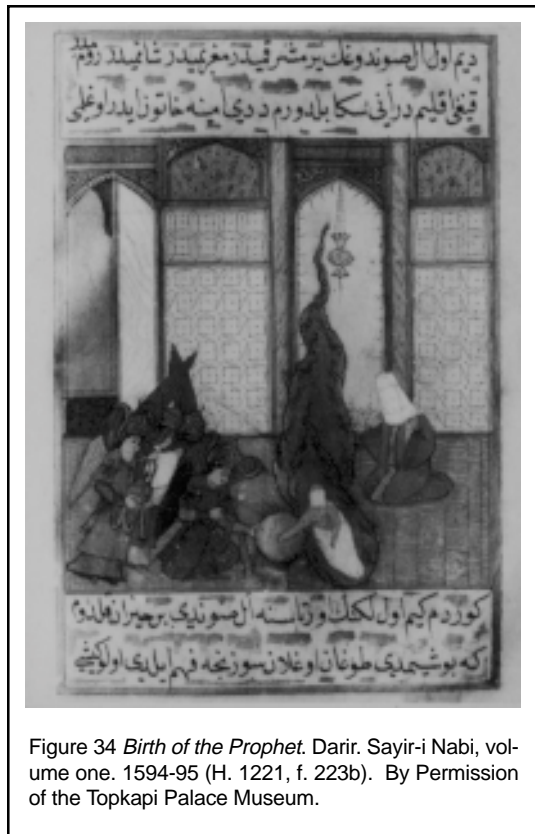 دیم اول ال صوندوغك یر مشرقمیدر مغربمیدر
اقلیم در انی سكا بلدورم ددی آمینه خاتون ایدر اوغلی
كوردم كیم اول ال صوندی حیران قلدوم
كه بو شیمدی طوغان اوغلان سوز نجه فهم ایلدی اول كیشی
Figure 34 Birth of the Prophet. Darir. Sayir-i Nabi, vol-
ume one. 1594-95 (H. 1221, f. 223b). By Permission
of the Topkapi Palace Museum.